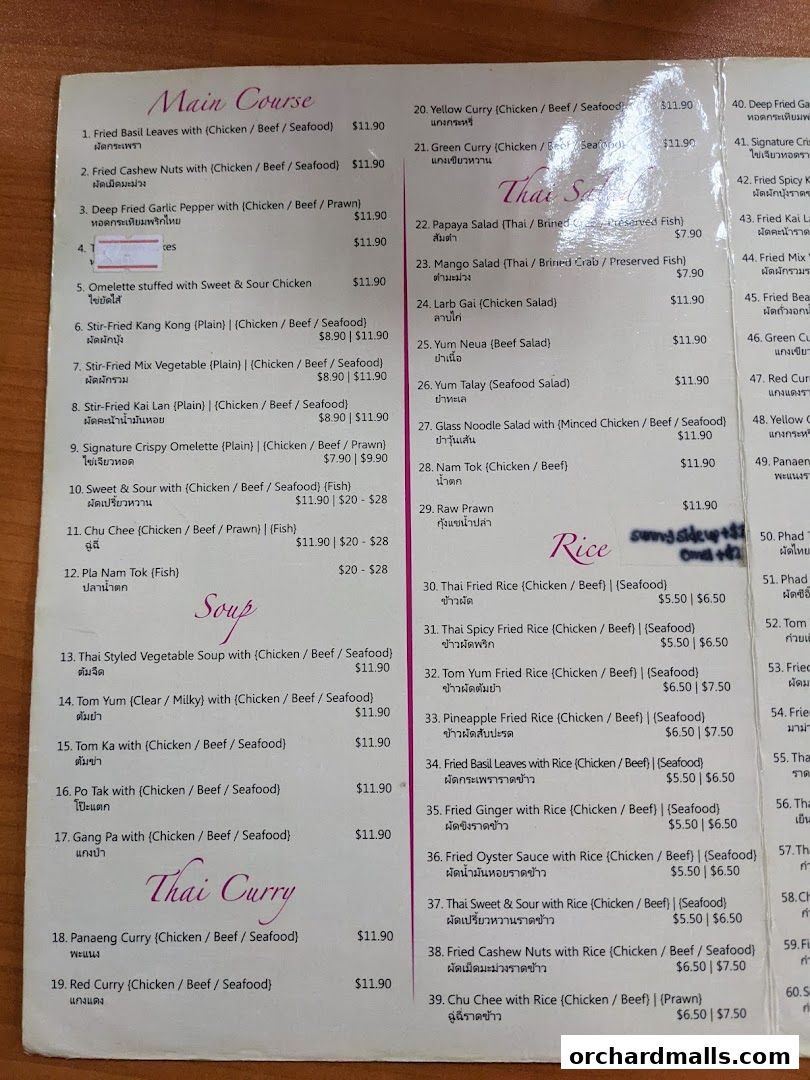 Main Course
1. Fried Basil Leaves with {Chicken / Beef / Seafood} $11.90
ผัดกระเพรา
2. Fried Cashew Nuts with {Chicken / Beef / Seafood} $11.90
ผัดเม็ดมะม่วง
3. Deep Fried Garlic Pepper with {Chicken / Beef / Prawn}
ทอดกระเทียมพริกไทย $11.90
4. T kes $11.90
5. Omelette stuffed with Sweet & Sour Chicken $11.90
ไข่ยัดไส้
6. Stir-Fried Kang Kong {Plain} | {Chicken / Beef / Seafood}
ผัดผักบุ้ง $8.90 | $11.90
7. Stir-Fried Mix Vegetable {Plain} | {Chicken / Beef / Seafood}
ผัดผักรวม $8.90 | $11.90
8. Stir-Fried Kai Lan {Plain} | {Chicken / Beef / Seafood}
ผัดคะน้าน้ำมันหอย $8.90 | $11.90
9. Signature Crispy Omelette {Plain} | {Chicken / Beef / Prawn}
ไข่เจียวทอด $7.90 | $9.90
10. Sweet & Sour with {Chicken / Beef / Seafood} {Fish}
ผัดเปรี้ยวหวาน $11.90 | $20 - $28
11. Chu Chee {Chicken / Beef / Prawn} | {Fish}
ฉู่ฉี่ $11.90 | $20 - $28
12. Pla Nam Tok {Fish} $20 - $28
ปลาน้ำตก
Soup
13. Thai Styled Vegetable Soup with {Chicken / Beef / Seafood}
ต้มจืด $11.90
14. Tom Yum {Clear / Milky} with {Chicken / Beef / Seafood}
ต้มยำ $11.90
15. Tom Ka with {Chicken / Beef / Seafood} $11.90
ต้มข่า
16. Po Tak with {Chicken / Beef / Seafood} $11.90
โป๊ะแตก
17. Gang Pa with {Chicken / Beef / Seafood} $11.90
แกงป่า
Thai Curry
18. Panaeng Curry {Chicken / Beef / Seafood} $11.90
พะแนง
19. Red Curry {Chicken / Beef / Seafood} $11.90
แกงแดง
20. Yellow Curry {Chicken / Beef / Seafood} $11.90
แกงกระหรี่
21. Green Curry {Chicken / Beef / Seafood} $11.90
แกงเขียวหวาน
Thai Salad
22. Papaya Salad {Thai / Brined Crab / Preserved Fish}
ส้มตำ $7.90
23. Mango Salad {Thai / Brined Crab / Preserved Fish}
ตำมะม่วง $7.90
24. Larb Gai {Chicken Salad} $11.90
ลาบไก่
25. Yum Neua {Beef Salad} $11.90
ยำเนื้อ
26. Yum Talay {Seafood Salad} $11.90
ยำทะเล
27. Glass Noodle Salad with {Minced Chicken / Beef / Seafood}
ยำวุ้นเส้น $11.90
28. Nam Tok {Chicken / Beef} $11.90
น้ำตก
29. Raw Prawn $11.90
กุ้งแช่น้ำปลา
Rice
sunny side up +$2
Omel +$2
30. Thai Fried Rice {Chicken / Beef} | {Seafood}
ข้าวผัด $5.50 | $6.50
31. Thai Spicy Fried Rice {Chicken / Beef} | {Seafood}
ข้าวผัดพริก $5.50 | $6.50
32. Tom Yum Fried Rice {Chicken / Beef} | {Seafood}
ข้าวผัดต้มยำ $6.50 | $7.50
33. Pineapple Fried Rice {Chicken / Beef} | {Seafood}
ข้าวผัดสับปะรด $6.50 | $7.50
34. Fried Basil Leaves with Rice {Chicken / Beef} | {Seafood}
ผัดกระเพราราดข้าว $5.50 | $6.50
35. Fried Ginger with Rice {Chicken / Beef} | {Seafood}
ผัดขิงราดข้าว $5.50 | $6.50
36. Fried Oyster Sauce with Rice {Chicken / Beef} | {Seafood}
ผัดน้ำมันหอยราดข้าว $5.50 | $6.50
37. Thai Sweet & Sour with Rice {Chicken / Beef} | {Seafood}
ผัดเปรี้ยวหวานราดข้าว $5.50 | $6.50
38. Fried Cashew Nuts with Rice {Chicken / Beef / Seafood}
ผัดเม็ดมะม่วงราดข้าว $6.50 | $7.50
39. Chu Chee with Rice {Chicken / Beef} | {Prawn}
ฉู่ฉี่ราดข้าว $6.50 | $7.50
40. Deep Fried Ga
ทอดกระเทียมพ
41. Signature Cris
ไข่เจียวทอดรา
42. Fried Spicy K
ผัดผักบุ้งราดข
43. Fried Kai La
ผัดคะน้าราด
44. Fried Mix
ผัดผักรวมร
45. Fried Bea
ผัดถั่วงอกน้
46. Green Cu
แกงเขีย
47. Red Cur
แกงแดงรา
48. Yellow C
แกงกระหรี่
49. Panaen
พะแนงร
50. Phad T
ผัดไทย
51. Phad
ผัดซีอิ๊
52. Tom
ก๋วยเ
53. Fried
ผัดม
54. Frie
มาม่า
55. Tha
ราด
56. Tha
เย็น
57. Th
ก๋
58. Ch
ก๋
59. Fi
ก๋
60. S
orchardmalls.com